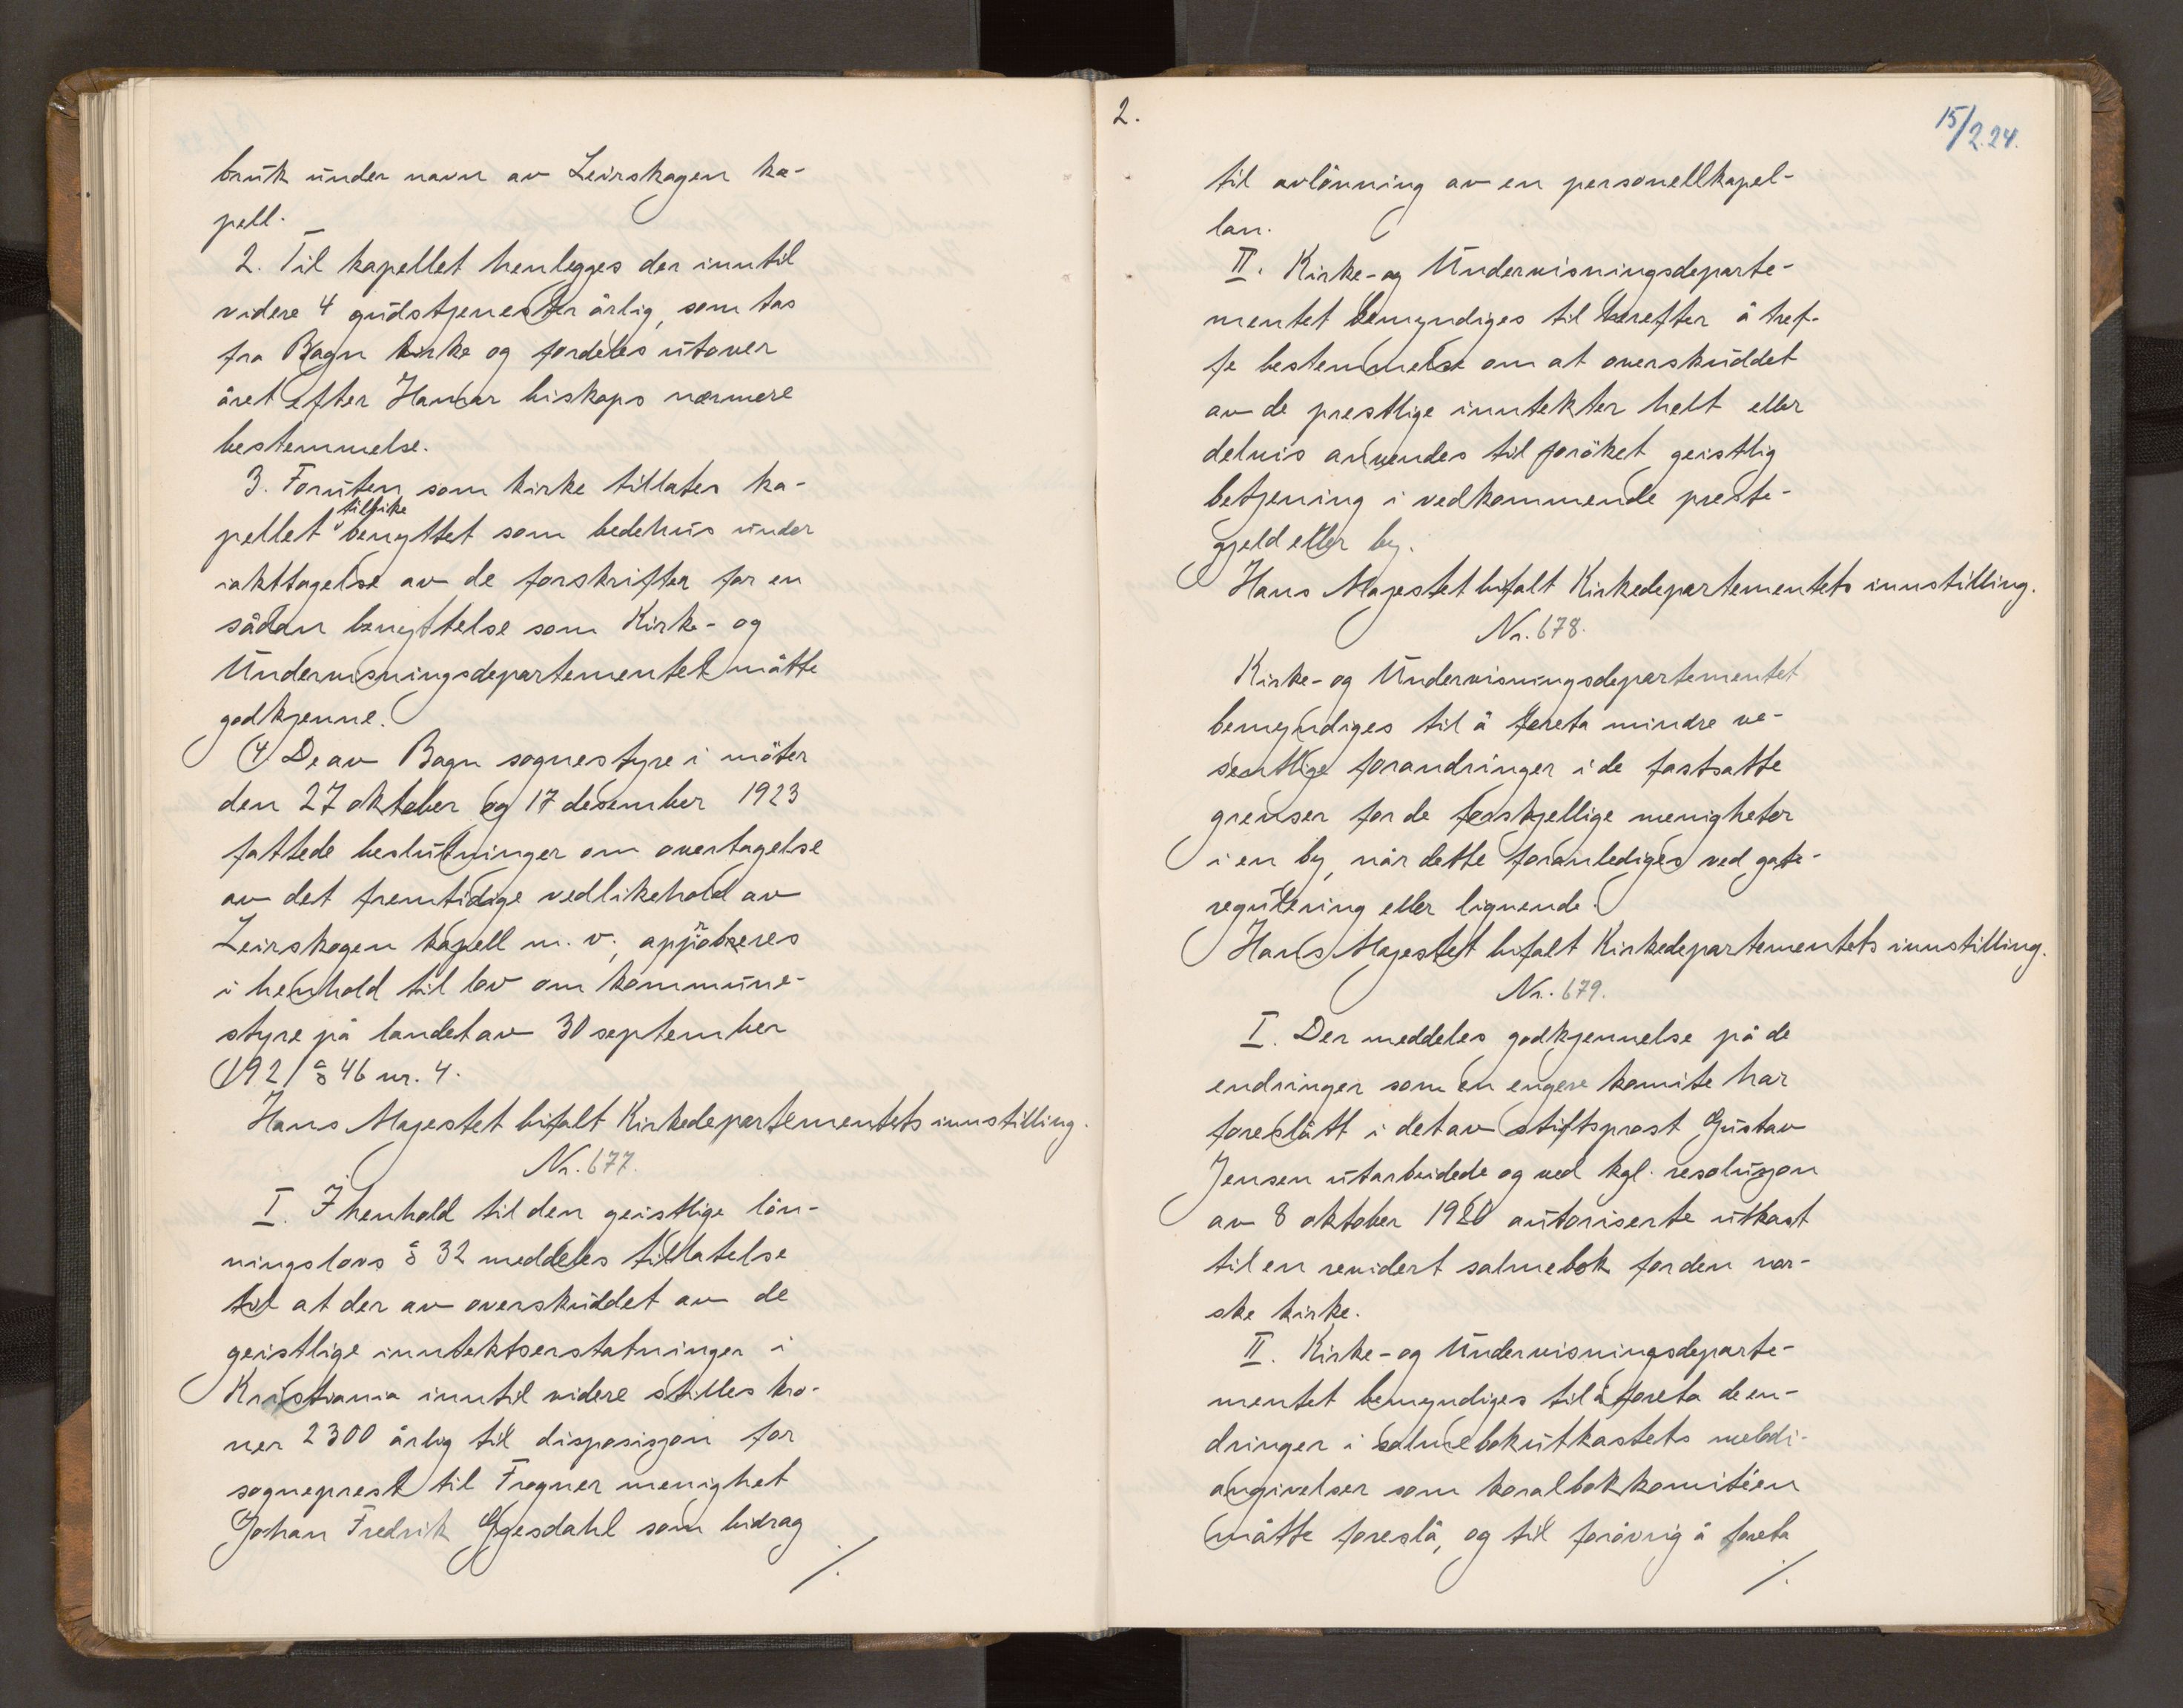 bruk under navn av Leirskogen ka-
pell.
2. Til kapellet henlegges der inntil
videre 4 gudstjenester årlig, som tas
fra Bagn kirke og fordeles utover
året efter Hamar biskops nærmere
bestemmelse.
3. Foruten som kirke tillates ka-
tillike
pellet benyttet som bedehus under
iakttagelse av de forskrifter for en
sådan benyttelse som Kirke- og
Undervisningsdepartementet måtte
godkjenne.
4 De av Bagn sognestyre i möter
den 27 oktober og 17 desember 1923
fattede beslutninger om overtagelse
av det fremtidige vedlikehold av
Leirskogen kapell m. v., approberes
i henhold til lov om kommune-
styre på landet av 30 september
1921 § 46 nr. 4.
Hans Majestet bifalt Kirkedepartementets innstilling.
Nr. 677.
I. I henhold til den geistlige lön-
ningslovs § 32 meddeles tillatelse
til at der av overskuddet av de
geistlige inntektserstatninger i
Kristiania inntil videre stilles kro-
ner 2300 årlig til disposisjon for
sogneprest til Frogner menighet
Johan Fredrik Gjesdahl som bidrag
./.
2.
15/2.24.
til avlönning av en personellkapel-
lan.
II. Kirke- og Undervisningsdeparte-
mentet bemyndiges til herefter å tref-
fe bestemmelse om at overskuddet
av de prestlige inntekter helt eller
delvis anvendes til foröket geistlig
betjening i vedkommende preste-
gjeld eller by.
Hans Majestet bifalt Kirkedepartementets innstilling.
Nr. 678.
Kirke- og Undervisningsdepartementet
bemyndiges til å foreta mindre ve-
sentlige forandringer i de fastsatte
grenser for de forskjellige menigheter
i en by, når dette foranlediges ved gate-
regulering eller lignende.
Hans Majestet bifalt Kirkedepartementets innstilling.
Nr. 679.
I. Der meddeles godkjennelse på de
endringer som en engere komite har
foreslått i det av stiftsprost Gustav
Jensen utarbeidede og ved kgl. resolusjon
av 8 oktober 1920 autoriserte utkast
til en revidert salmebok for den nor-
ske kirke.
II. Kirke- og Undervisningsdeparte-
mentet bemyndiges til å foreta de en-
dringer i salmebokutkastets melodi-
angivelser som koralbokkomitéen
måtte foreslå, og til forövrig å foreta
./.